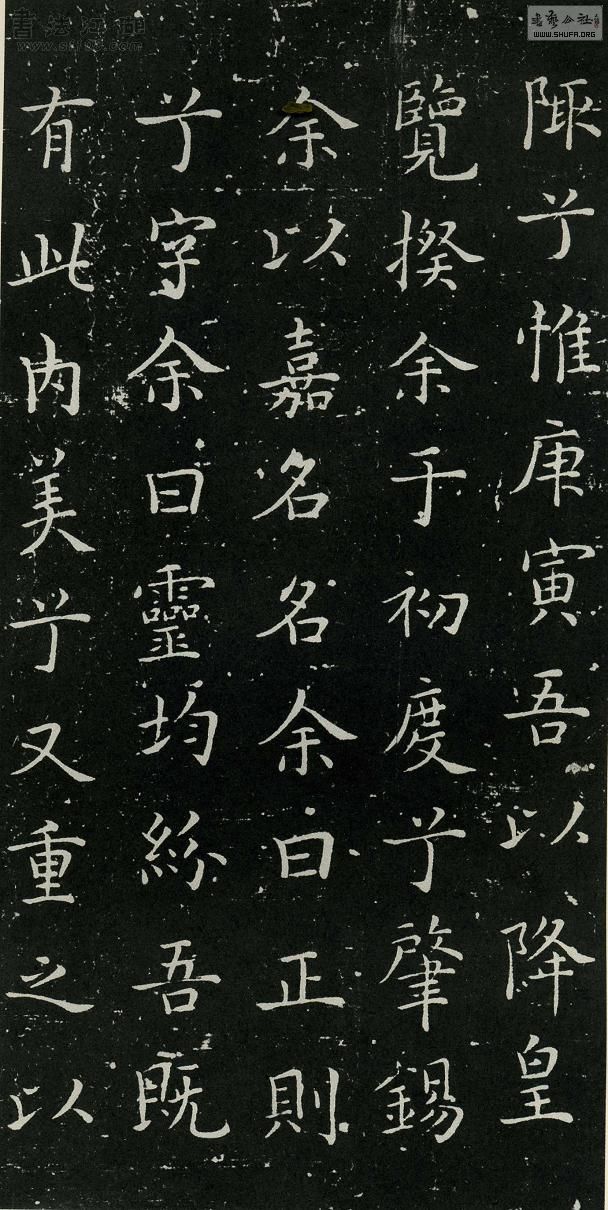 陬兮惟庚寅吾以降皇
覽揆余于初度兮肇錫
余以嘉名名余曰正則
兮字余曰靈均紛吾既
有此内美兮又重之以
書藝公社
WWW.SHUFA.ORG
書法江湖